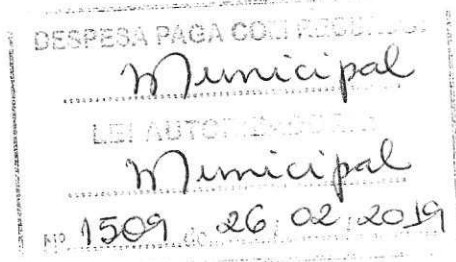 DESPESA PAGA COM RECURSO
Municipal
LEI AUTORIZATIVA
Municipal
Nº 1509 de 26/02/2019